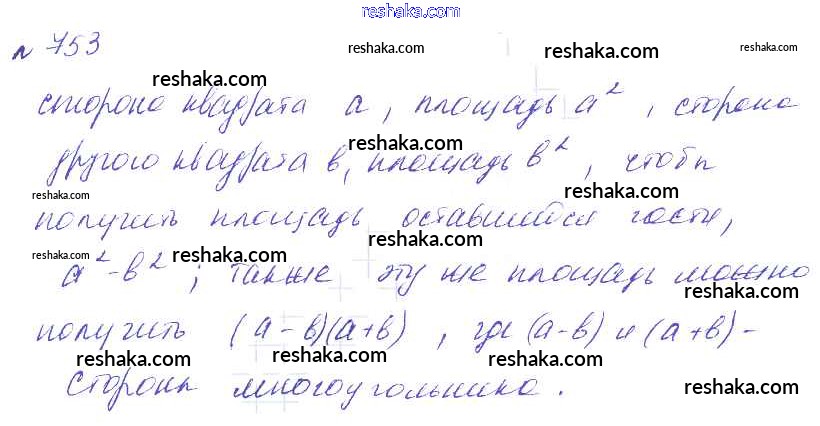 reshaka.com
№ 753
reshaka.com reshaka.com reshaka.com
reshaka.com reshaka.com
сторона квадрата a, площадь a², сторона
reshaka.com reshaka.com
другого квадрата b, площадь b², чтобы
reshaka.com reshaka.com
получить площадь оставшейся части,
reshaka.com reshaka.com reshaka.com
a² - b²; также эту же площадь можно
reshaka.com
получить (a - b)(a + b), где (a - b) и (a + b) -
reshaka.com reshaka.com reshaka.com
стороны многоугольника.
reshaka.com